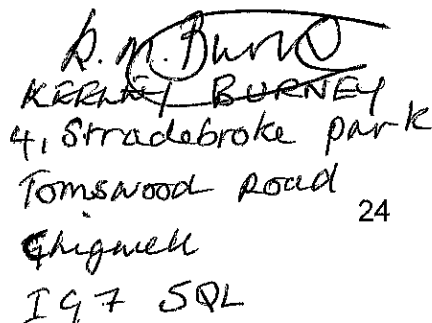 K.M. Burney
KEELEY BURNEY
4, Stradebroke park
Tomswood Road
24
Chigwell
IG7 5QL